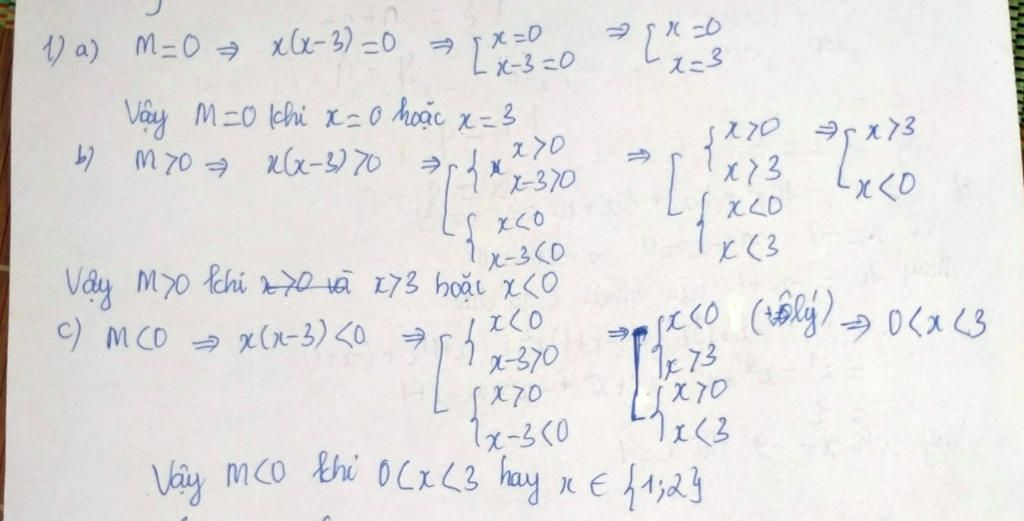 1) a) M=0 ⇒ x(x-3)=0 ⇒ [ x=0 ⇒ [ x=0
x-3=0 x=3
Vậy M=0 khi x=0 hoặc x=3
b) M>0 ⇒ x(x-3)>0 ⇒ [ { x>0 ⇒ [ { x>0 ⇒ [ x>3
x-3>0 x>3 x<0
{ x<0 { x<0
x-3<0 x<3
Vậy M>0 khi x>0 và x>3 hoặc x<0
c) M<0 ⇒ x(x-3)<0 ⇒ [ { x<0 ⇒ [ { x<0 (vô lý) ⇒ 0<x<3
x-3>0 x>3
{ x>0 { x>0
x-3<0 x<3
Vậy M<0 khi 0<x<3 hay x ∈ {1;2}